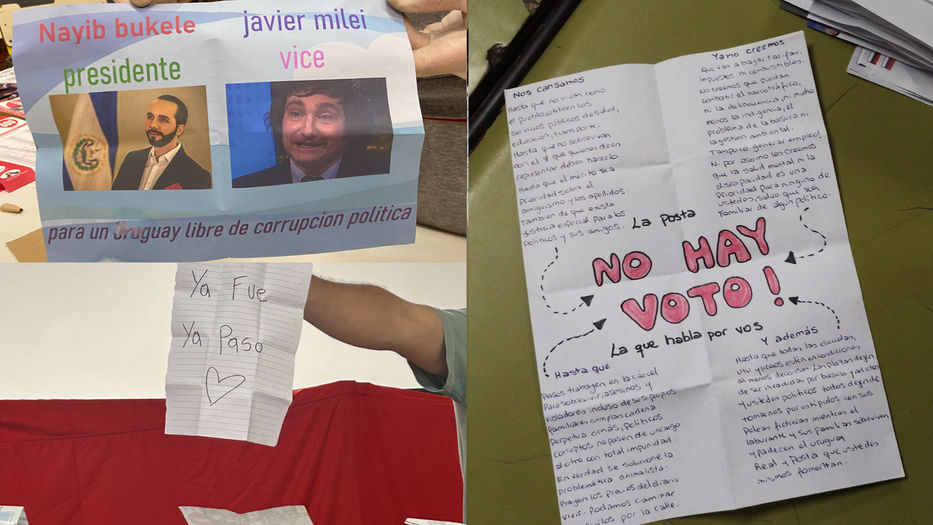 Nayib bukele
javier milei
presidente
vice
para un Uruguay libre de corrupcion politica
Ya Fue
Ya Paso
Nos cansamos
Hasta que no vivan como
el pueblo, utilicen los
servicios públicos de salud,
educación, transporte.
Hasta que no sobrevivan
con el $ que quienes dicen
representar deban hacerlo.
Hasta que el mérito sea
Prioridad sobre el
amiguismo y los apellidos.
También de que exista
justicia especial para los
Políticos y sus amigos.
Ya no creemos
Que van a bajar tarifas,
impuestos ni combustibles.
No creemos que puedan
combatir el narcotráfico,
ni la delincuencia, ni mucho
menos la indigencia, el
problema de la basura ni
la gestión ambiental.
Tampoco generar empleo!
Ni por asomo les creemos
que la salud mental ni la
discapacidad es una
Prioridad para ninguno de
ustedes, salvo que sea
familiar de algún político.
La posta
NO HAY
VOTO!
La que habla por vos
Hasta que
Presos trabajen en la cárcel
Para sobrevivir, asesinos y
violadores incluso de sus propios
familiares cumplan cadena
Perpetua o más, Políticos
corruptos no pasen de un cargo
al otro con total impunidad.
En verdad se solucione la
problemática animalista.
Bajen los precios del diario
vivir. Podamos caminar
por la calle.
Y además
Hasta que todas las escuelas,
utu y liceos estén en condiciones
al menos decorosas. Las plazas dejen
de ser invadidas por basura y adictos
y ustedes políticos todos dejen de
tomarnos por estúpidos con sus
peleas ficticias mientras el
laburante y sus familias sobreviven
y padecen el uruguay
Real y Posta que ustedes
mismos fomentan.